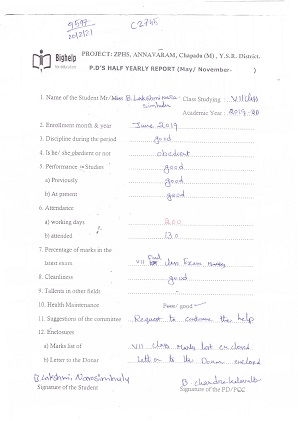 9597
20/2/21
C2755
Bighelp
for education
PROJECT: ZPHS, ANNAVARAM, Chapadu (M), Y.S.R. District.
P.D'S HALF YEARLY REPORT (May/ November- )
1. Name of the Student Mr/Miss B. Lakshmi Nara- Class Studying : VII Class
simhulu Academic Year : 2019-20
2. Enrollment month & year June 2019
3. Discipline during the period good
4. Is he/ she obedient or not obedient
5. Performance in Studies good
a) Previously good
b) At present good
6. Attendance
a) working days 200
b) attended 130
7. Percentage of marks in the
latest exam VII Class Exam Marks
8. Cleanliness good
9. Tallents in other fields
10. Health Maintenance Poor/ good
11. Suggestions of the committee Request to continue the help
12. Enclosures
a) Marks list of VII Class Marks list enclosed
b) Letter to the Donar Letter to the Donar enclosed
B. Lakshmi Narasimhulu
Signature of the Student Signature of the PD/PCC